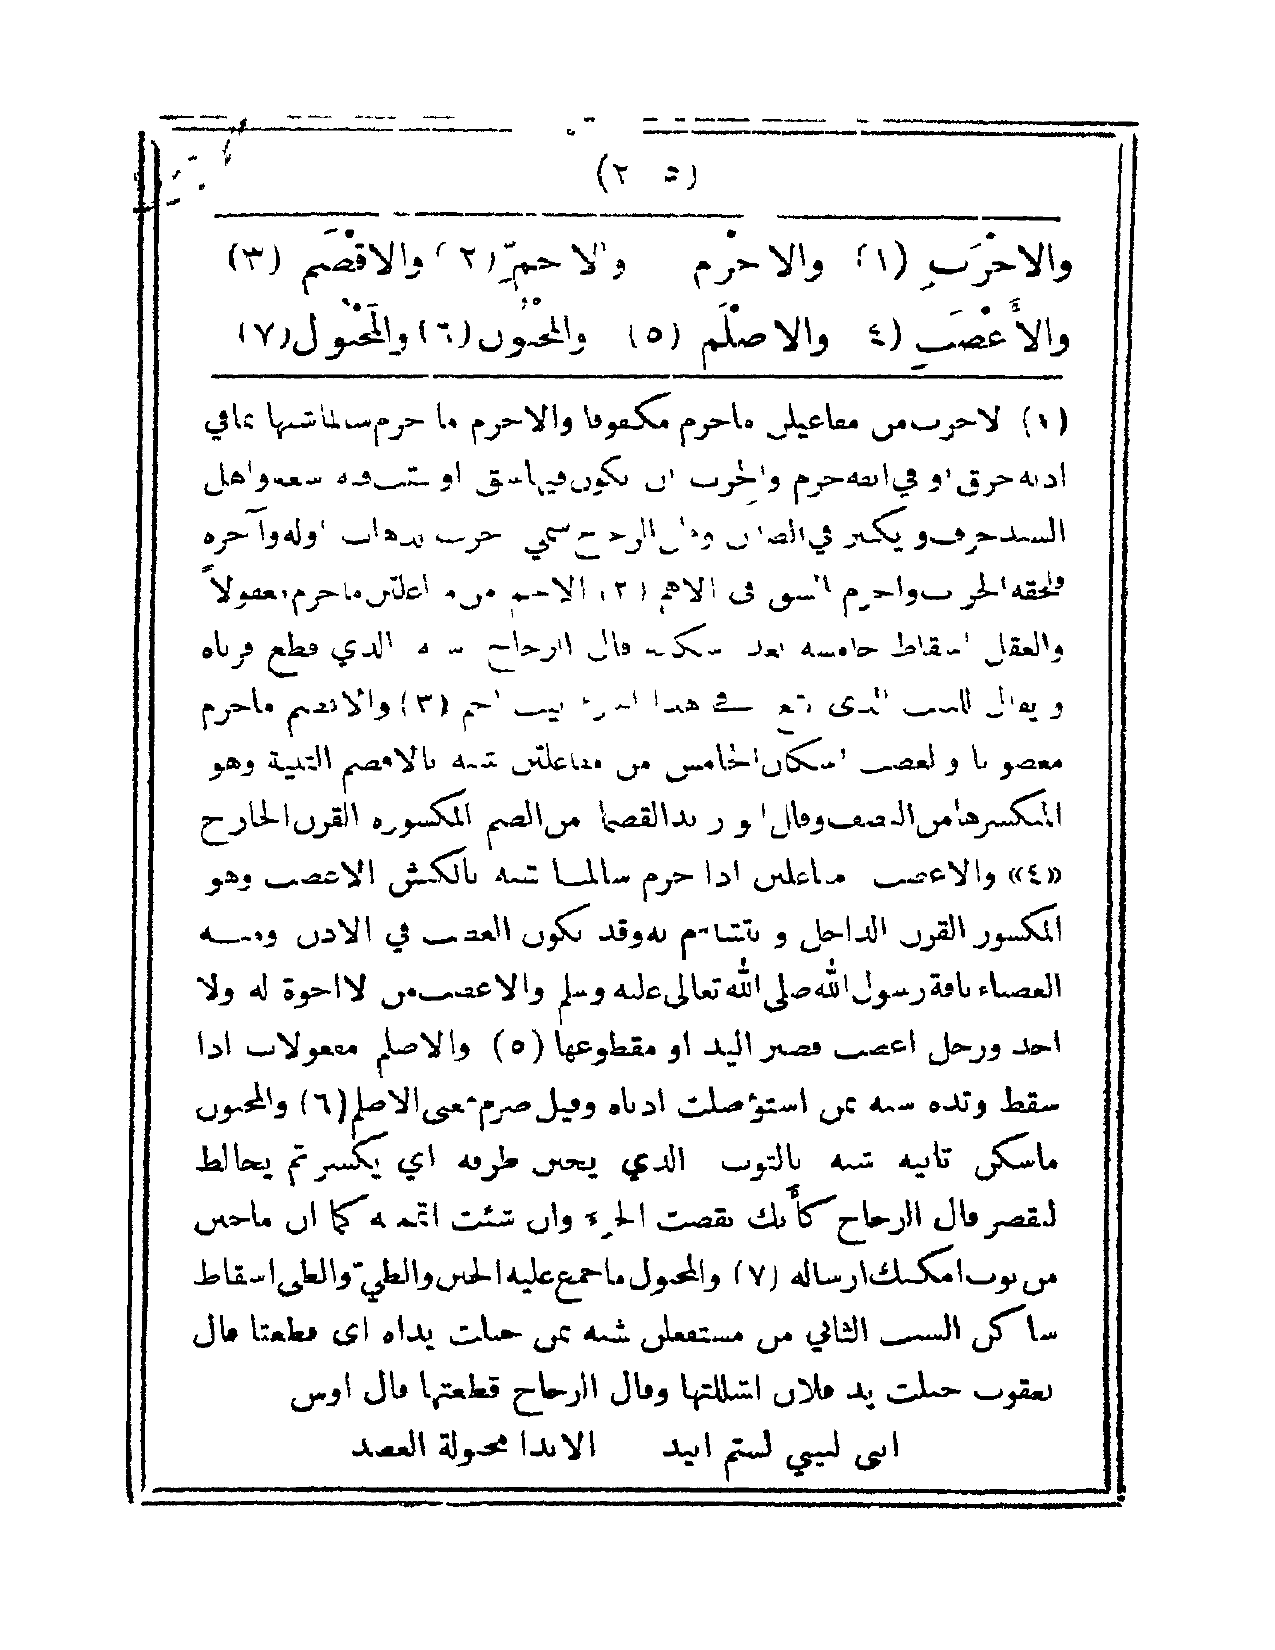 (٢٥)
والاخْرَبِ (١) والاخْرم والاحمِّ (٢) والاقْصَم (٣)
والأَعْضَبِ (٤) والاصْلَم (٥) والمَخْبُون (٦) والمَخْبُول (٧)
(١) لاخرب من مفاعيلن ماخرم مكفوفا والاخرم ما خرم سالما شبها بما في
اذنه خرق او في انفه خرم والخرب ان يكون فيها شق او ثقب فيه سعة واهل
السند خرف و يكثر في الضان وقال الزجاج سمي خرب بذهاب اوله وآخره
فلحقه الخراب واخرم الشق في الانف (٢) الاجم من مفاعلتن ماخرم معقولاً
والعقل اسقاط خامسه بعد سكونه قال الزجاج شبه الذي قطع قرناه
و يقال للبيت الذي يقع في هذا الجزء بيت اجم (٣) والاقصم ماخرم
معصوبا و العصب اسكان الخامس من مفاعلتن شبه بالاقصم الثنية وهو
المنكسرها من النصف وقال ابو زيد القصما من الضم المكسورة القرن الخارج
«٤» والاعضب مفاعلتن اذا خرم سالما شبه بالكبش الاعضب وهو
المكسور القرن الداخل و يتشاءم به وقد يكون العضب في الاذن ومنه
العضباء ناقة رسول الله صلى الله تعالى عليه وسلم والاعضب من لا اخوة له ولا
احد ورجل اعضب قصير اليد او مقطوعها (٥) والاصلم مفعولات اذا
سقط وتده شبه بمن استؤصلت اذناه وقيل صرم بمعنى الاصلم (٦) والمخبون
ماسكن ثانيه شبه بالثوب الذي يخبن طرفه اي يكسر ثم يخاط
ليقصر قال الزجاج كأنك نقصت الجزء وان شئت اتممته كما ان ماخبن
من ثوب امكنك ارساله (٧) والمخبول ماجمع عليه الخبن والطيّ والطى اسقاط
ساكن السبب الثاني من مستفعلن شبه بمن خبلت يداه اى قطعتا قال
يعقوب خبلت يد فلان اشللتها وقال الزجاج قطعتها قال اوس
ابنى لبيني لستم ابيد الا يدا مخبولة العضد